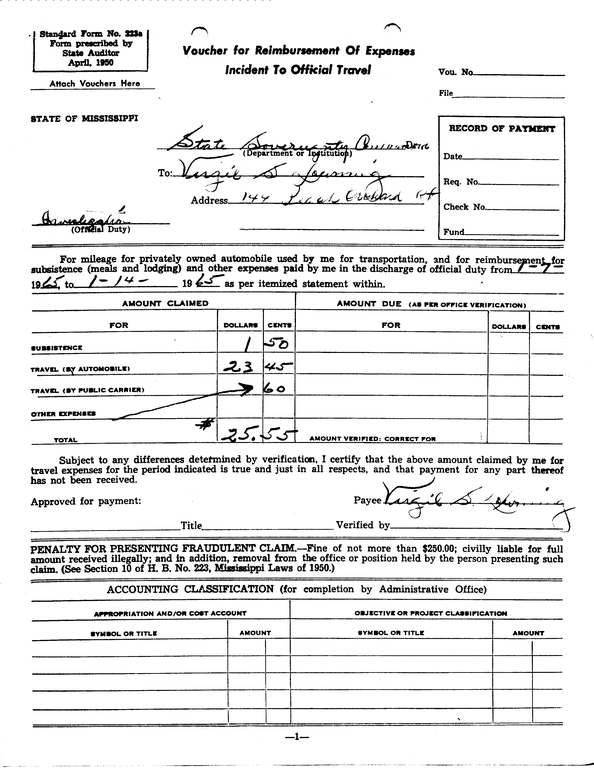 Standard Form No. 223a
Form prescribed by
State Auditor
April, 1950
Attach Vouchers Here
Voucher for Reimbursement Of Expenses
Incident To Official Travel
Vou. No.
File
STATE OF MISSISSIPPI
State Sovereignty Commission
(Department or Institution)
To: Virgil S Downing
Address 144 Peach Orchard
(Official Duty)
RECORD OF PAYMENT
Date
Req. No.
Check No.
Fund
For mileage for privately owned automobile used by me for transportation, and for reimbursement for
subsistence (meals and lodging) and other expenses paid by me in the discharge of official duty from 1-7-
1965, to 1-14- 1965 as per itemized statement within.
AMOUNT CLAIMED
AMOUNT DUE (AS PER OFFICE VERIFICATION)
FOR DOLLARS CENTS FOR DOLLARS CENTS
SUBSISTENCE 1 50
TRAVEL (BY AUTOMOBILE) 23 45
TRAVEL (BY PUBLIC CARRIER) 60
OTHER EXPENSES
TOTAL # 25.55 AMOUNT VERIFIED: CORRECT FOR
Subject to any differences determined by verification, I certify that the above amount claimed by me for
travel expenses for the period indicated is true and just in all respects, and that payment for any part thereof
has not been received.
Approved for payment: Payee Virgil S Downing
Title Verified by
PENALTY FOR PRESENTING FRAUDULENT CLAIM.—Fine of not more than $250.00; civilly liable for full
amount received illegally; and in addition, removal from the office or position held by the person presenting such
claim. (See Section 10 of H. B. No. 223, Mississippi Laws of 1950.)
ACCOUNTING CLASSIFICATION (for completion by Administrative Office)
APPROPRIATION AND/OR COST ACCOUNT
OBJECTIVE OR PROJECT CLASSIFICATION
SYMBOL OR TITLE AMOUNT SYMBOL OR TITLE AMOUNT
—1—